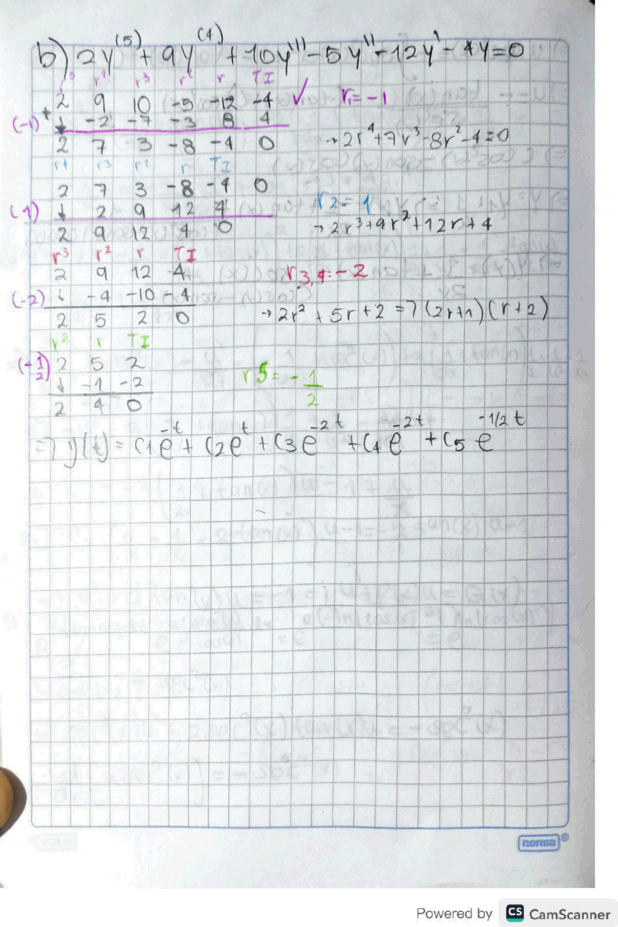 b) 2y^(5) + 9y^(4) + 10y''' - 5y'' - 12y' - 4y = 0
r⁵ r⁴ r³ r² r TI
2 9 10 -5 -12 -4 ✓ r₁ = -1
(-1) + ↓ -2 -7 -3 8 4
2 7 3 -8 -4 0 → 2r⁴+7r³-8r²-4=0
r⁴ r³ r² r TI
2 7 3 -8 -4 0
(1) ↓ 2 9 12 4 r2 = 1
2 9 12 4 0 → 2r³+9r²+12r+4
r³ r² r TI
2 9 12 4 r3,4 = -2
(-2) ↓ -4 -10 -4
2 5 2 0 → 2r² + 5r + 2 => (2r+1)(r+2)
r² r TI
(-1/2) 2 5 2
↓ -1 -2 r5 = -1/2
2 4 0
=> y(t) = C1e^-t + C2e^t + C3e^-2t + C4e^-2t + C5e^-1/2t
norma®
Powered by CS CamScanner